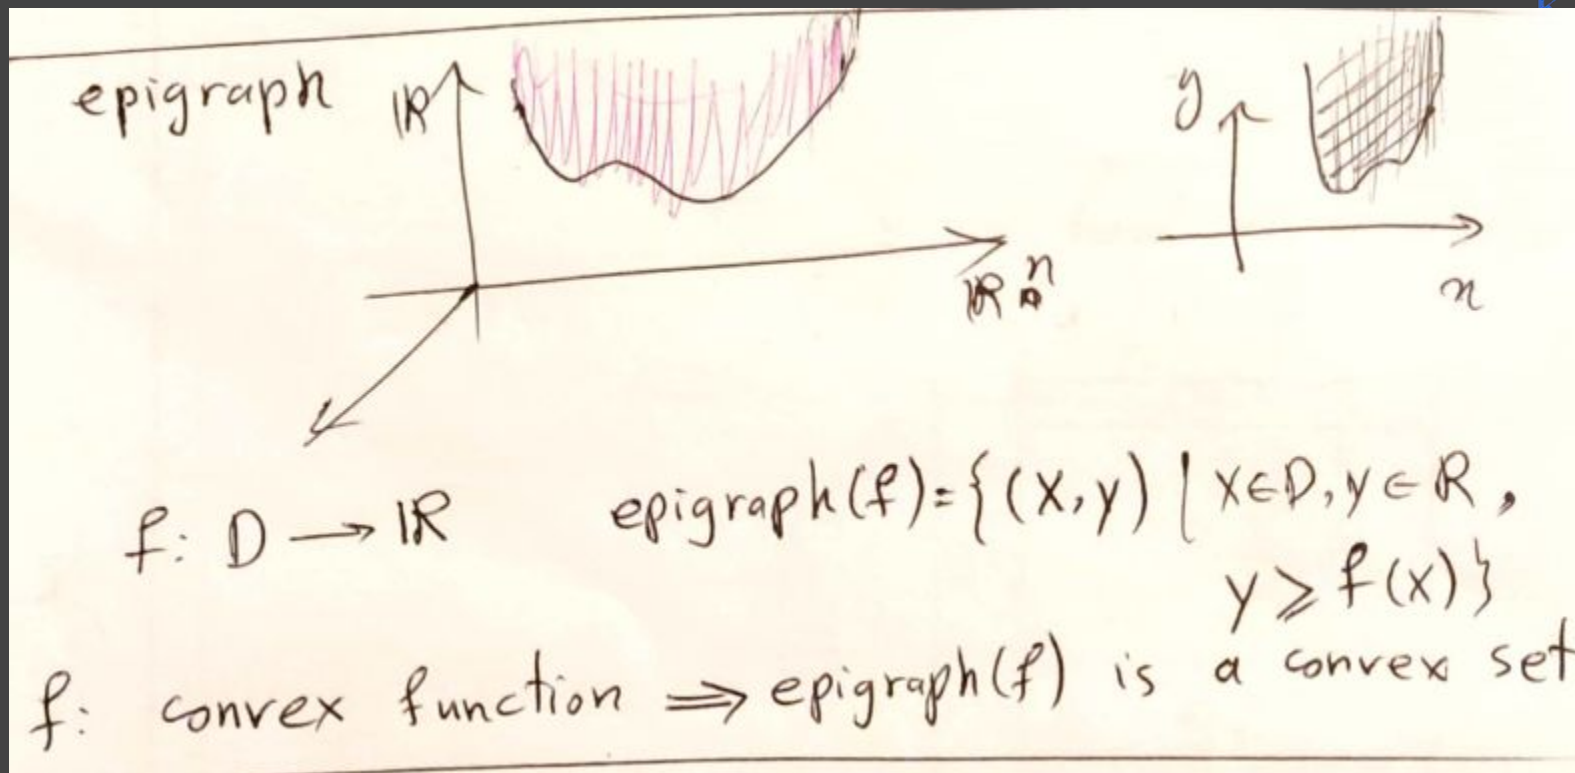 epigraph
ℝ
ℝⁿ
y
x
f: D → ℝ
epigraph(f)={(x,y) | x∈D, y∈R,
y ⩾ f(x)}
f: convex function ⟹ epigraph(f) is a convex set